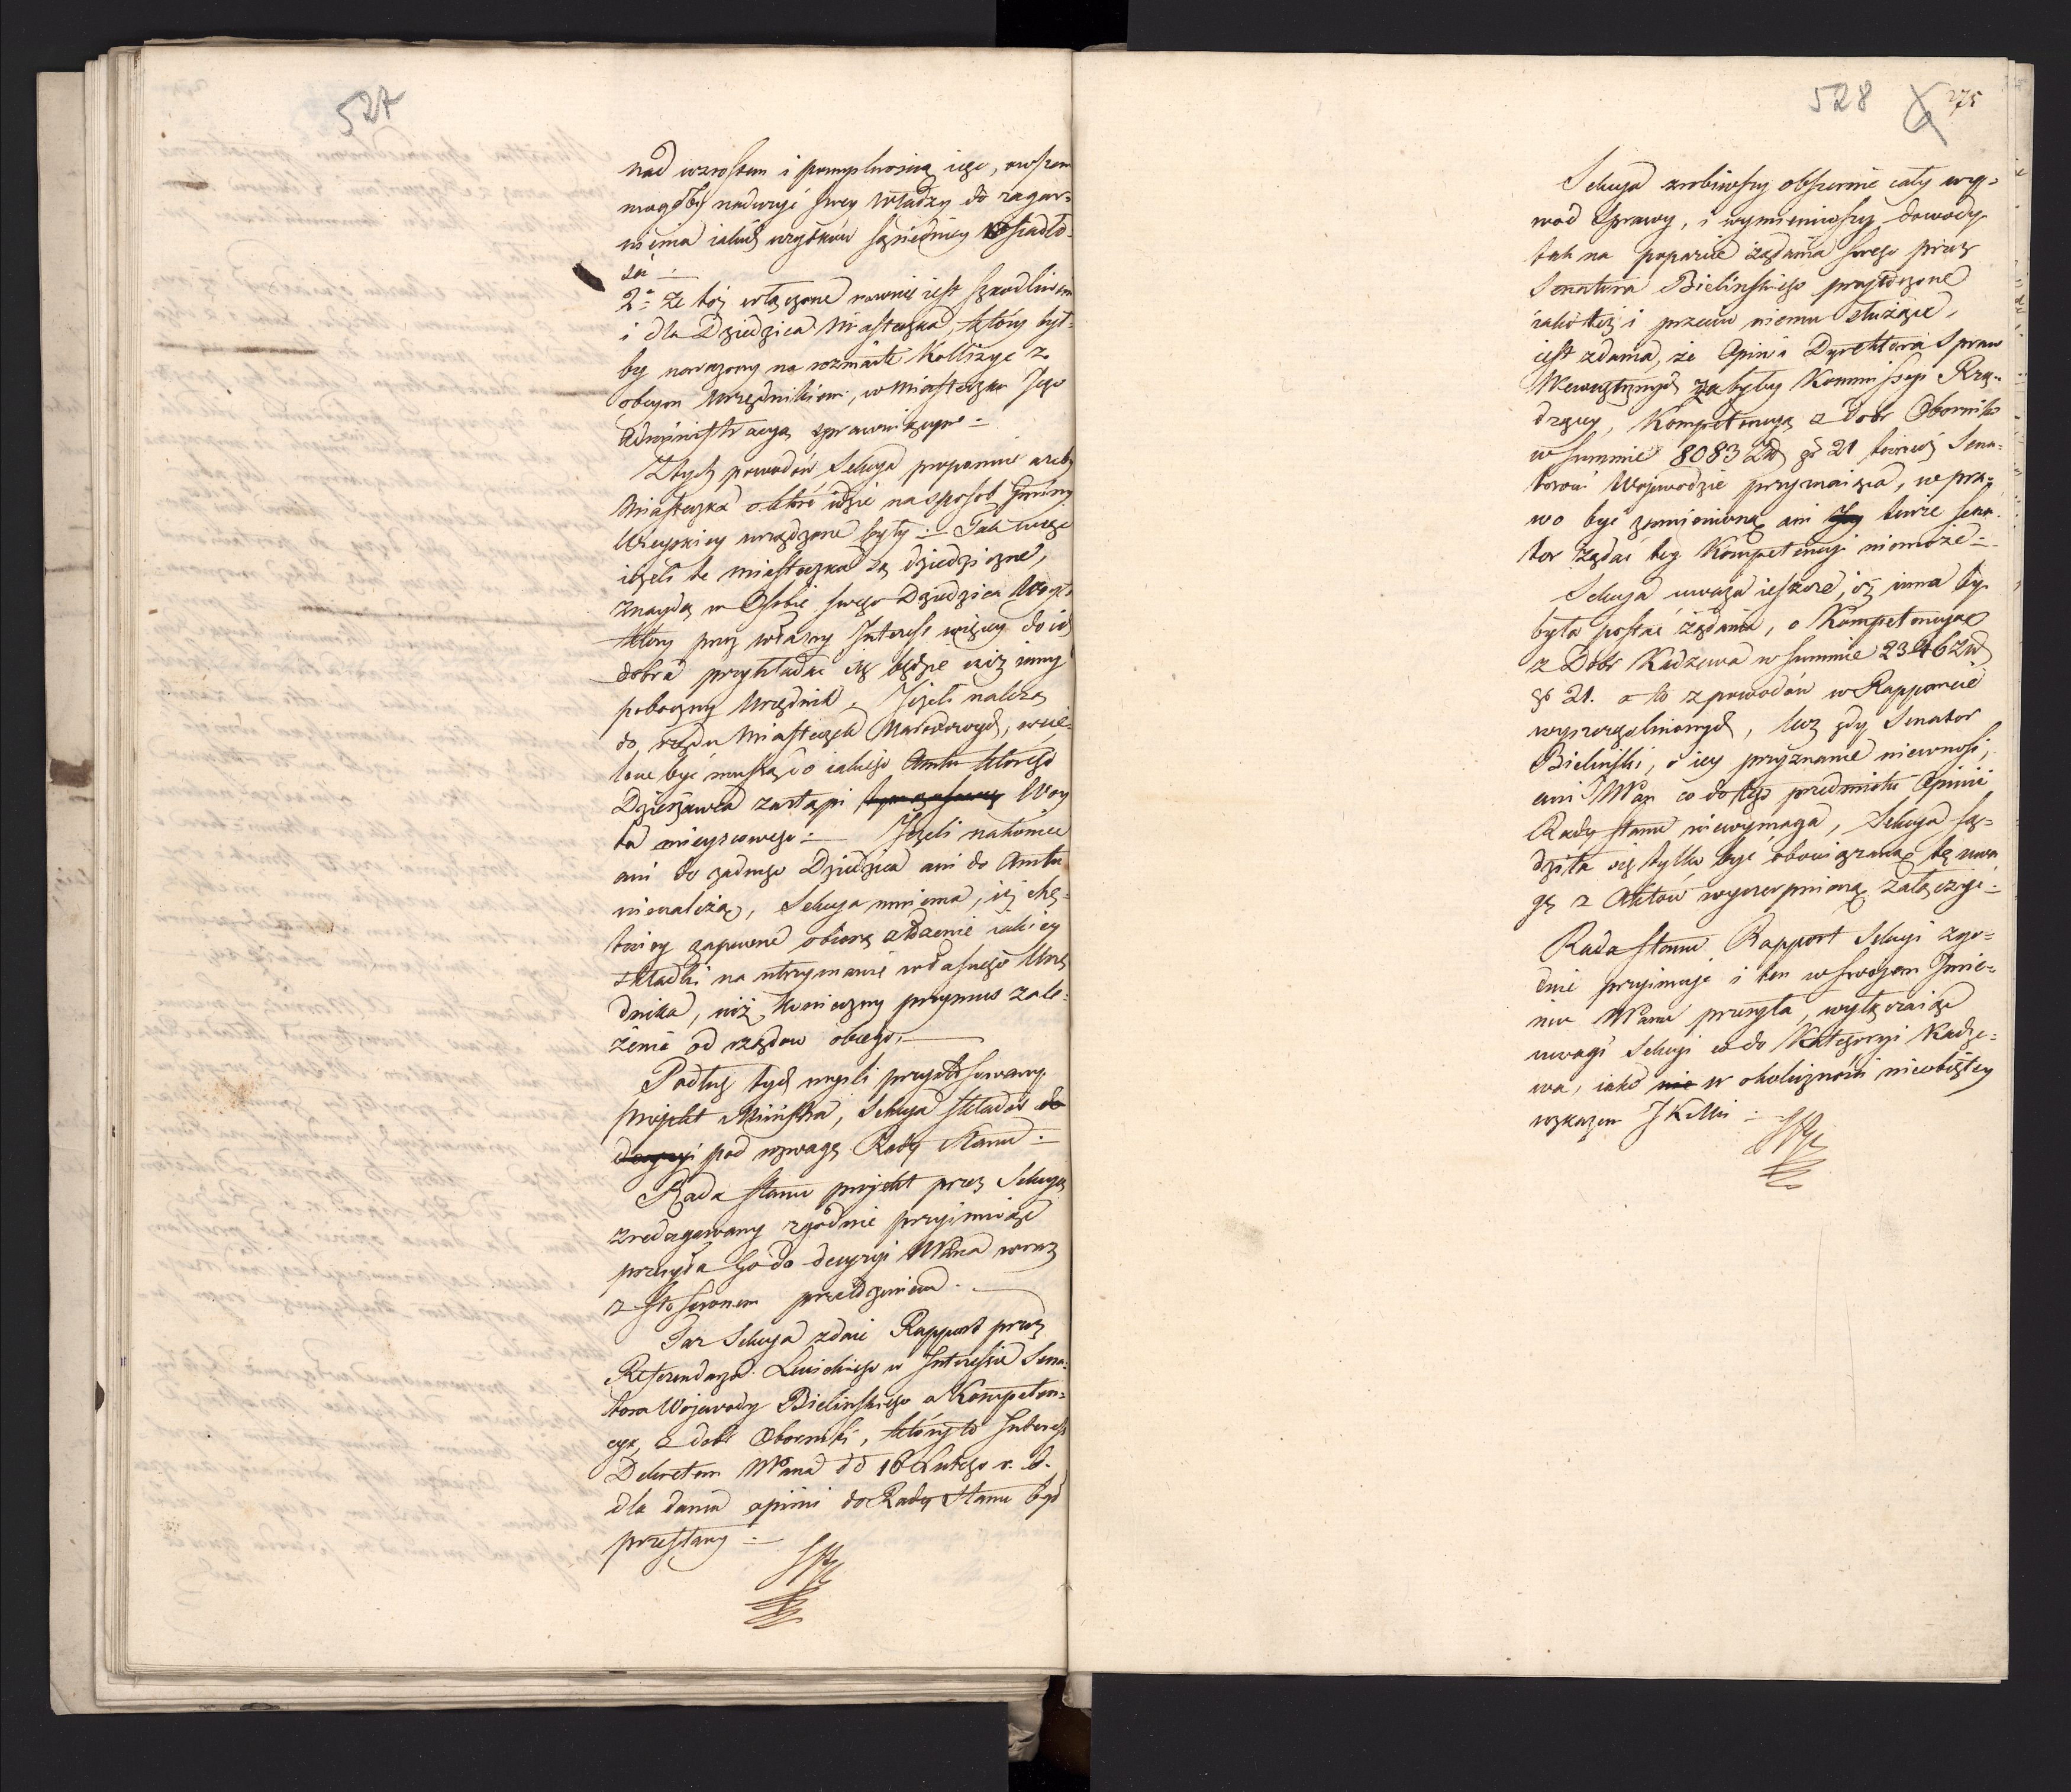 527
nad wzrostem i pomyslnością iego, owszem
mogłby nadużyć swey Władzy do zagar-
nienia iakich użytków sąsiedniey Posiadło-
sci
2e że toż włączenie rownie iest szkodliwem
i dla Dziedzica Miasteczka, który był-
by narażony na rozmaite Kollizye z
obcym Urzędnikiem, w Miasteczku Jego
Administracyą sprawuiącym
Z tych powodów Sekcya proponuie ażeby
Miasteczka o które idzie na sposob Gminy
Wieyskiey urządzone były. Tak więc
ieżeli te miasteczka są dziedziczne,
znaydą w Osobie swego Dziedzica Woyta
który przez własny Interess więcey do ich
dobra przykładać się będzie niż inny
poboczny Urzędnik, Jeżeli należą
do rzędu Miasteczek Narodowych, wcie-
lone być muszą do iakiego Amtu którego
Dzierżawca zastąpi Woy
ta mieyscowego. Jeżeli nakoniec
ani do żadnego Dziedzica ani do Amtu
nienależą, Sekcya mniema, iż chę-
tniey zapewne obiorą złożenie iakiey
składki na utrzymanie własnego Urzę
dnika, niż konieczny przymus zale-
żenia od rządow obcego.
Podług tych mysli przystosowany
projekt Ministra, Sekcya składa do
decyzyi pod rozwagę Rady Stanu
Rada Stanu projekt przez Sekcyą
zredagowany zgodnie przyimuiąc
przesyła go do decyzyi WPana wraz
z stosownem przełożeniem.
Taż Sekcya zdaie Rapport przez
Referendarza Lewickiego w Interessie Sena-
tora Wojewody Bielinskiego o Kompeten-
cyą z dobr Oborniki, który to Interess
Dekretem WPana dd 16 Lutego r. b.
dla dania opinii do Rady Stanu był
przesłany
528 275
Sekcya zrobiwszy obszernie cały wy-
wod Sprawy, i wymieniwszy dowody
tak na poparcie żądania swego przez
Senatora Bielinskiego przytoczone
iako też i przeciw niemu służące,
iest zdania, że Opinia Dyrektora Spraw
Wewnętrznych za byłey Kommissyi Rzą-
dzącey, Kompetencyą z dobr Oborniki
w summie 8083 Zł gr 21 temuż Sena-
torowi Wojewodzie przyznaiąca, nepra-
wo być zmienioną ani tenże Sena-
tor żądać tey Kompetencyi niemoże
Sekcya uważa ieszcze, iż inna by
była postać żądania, o Kompetencyą
z Dobr Kadzewa w summie 2346 Zł
gr 21. a to z powodów w Rapporcie
wyszczególnionych, lecz gdy Senator
Bielinski, o iey przyznanie niewnosi,
ani WPan co do tego przedmiotu Opinii
Rady Stanu niewymaga, Sekcya są-
dziła się tylko być obowiązaną tę uwa
gę z Aktów wyczerpnioną załączyć
Rada Stanu Rapport Sekcyi zgo-
dnie przyimuje i ten w swojem Imie-
niu WPanu przesyła, wyłączaiąc
uwagi Sekcyi co do Kategoryi Kadze-
wa, iako nie w okoliczności nieobiętey
rozkazem JKMci